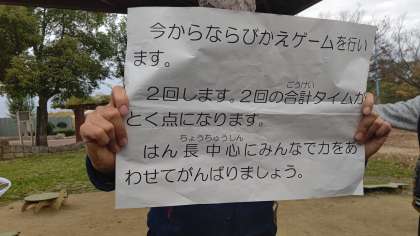 今からならびかえゲームを行い
ます。
2回します。2回の合計タイムが
とく点になります。
はん長中心にみんなで力をあ
わせてがんばりましょう。